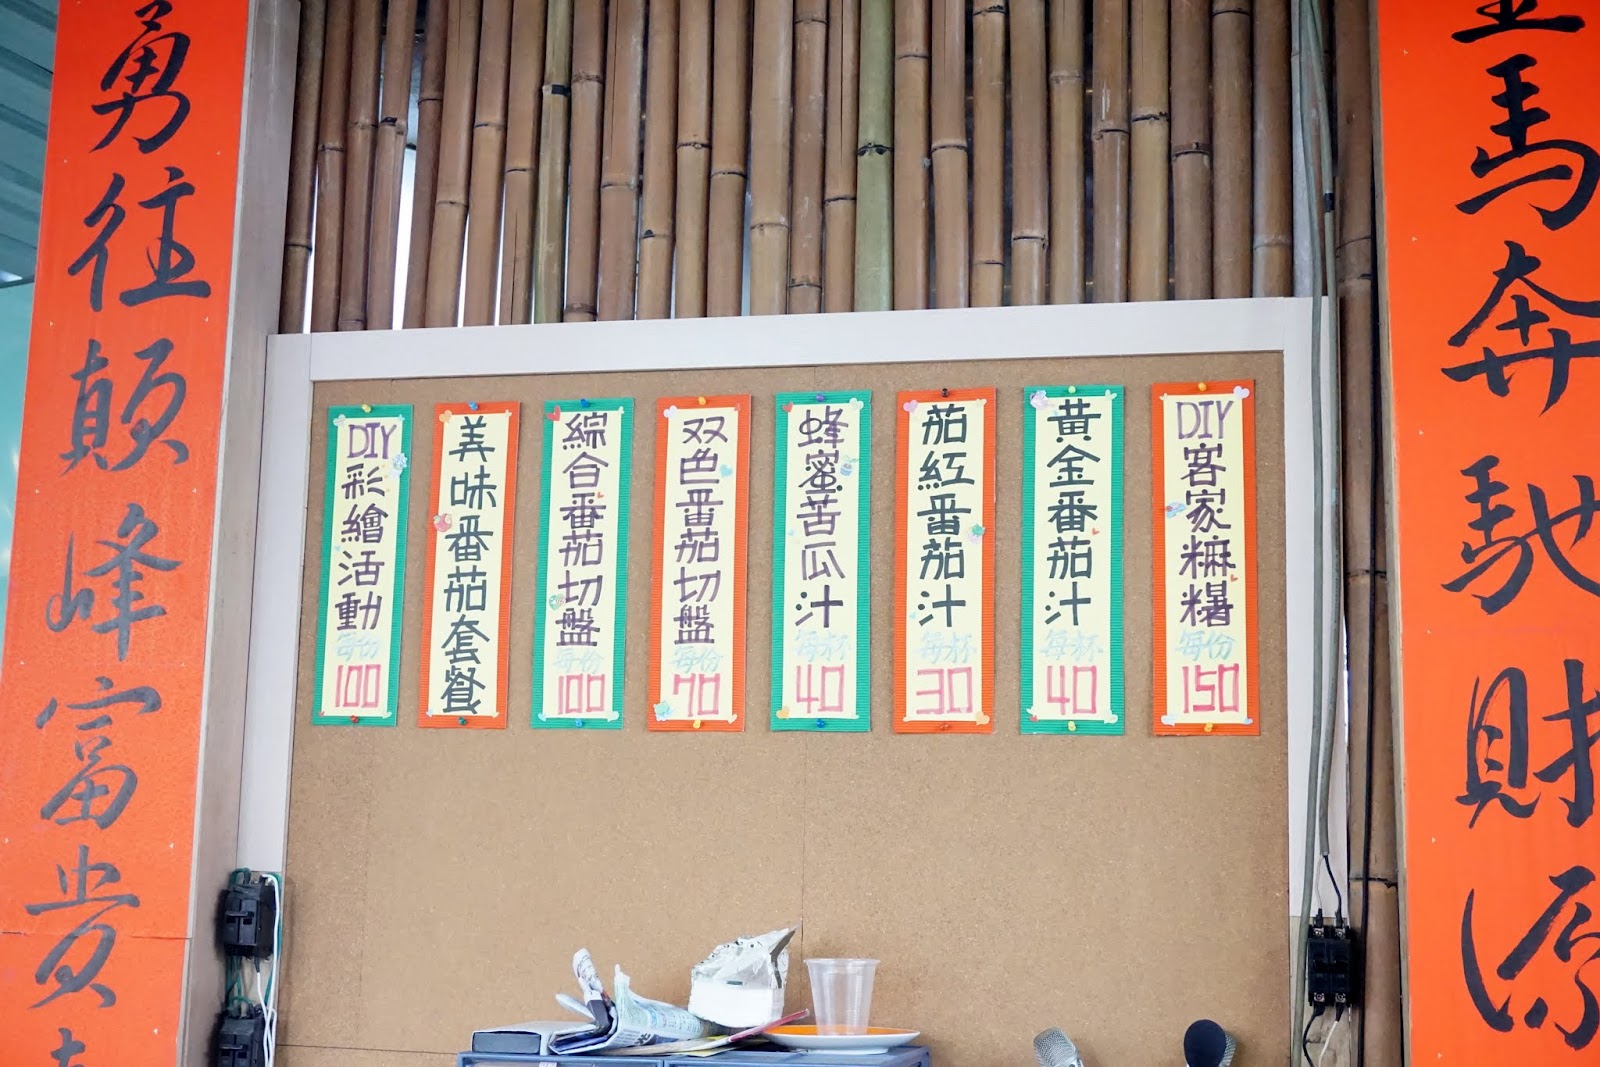 馬奔馳財源
DIY客家䊳糬 每份 150
黃金番茄汁 每杯 40
茄紅番茄汁 每杯 30
蜂蜜苦瓜汁 每杯 40
双色番茄切盤 每份 70
綜合番茄切盤 每份 100
美味番茄套餐
DIY彩繪活動 每份 100
勇往顛峰富貴